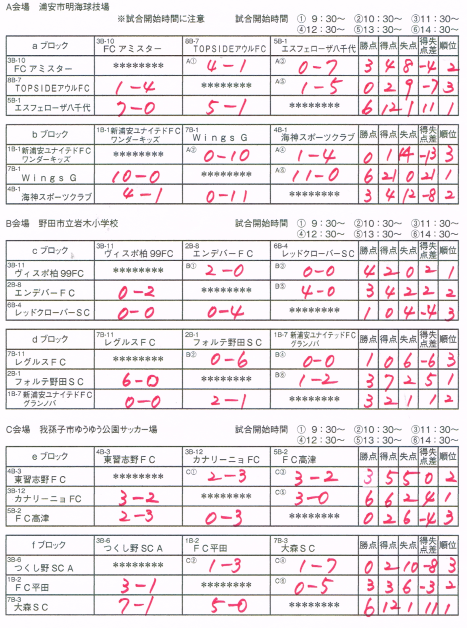 A会場 浦安市明海球技場
※試合開始時間に注意 試合開始時間 ① 9:30～ ②10:30～ ③11:30～
④12:30～ ⑤13:30～ ⑥14:30～
aブロック 3B-10 FCアミスター 8B-7 TOPSIDEアウルFC 5B-1 エスフェローザ八千代 勝点 得点 失点 得失点差 順位
3B-10 FCアミスター ******** A① 4-1 A③ 0-7 3 4 8 -4 2
8B-7 TOPSIDEアウルFC 1-4 ******** A⑤ 1-5 0 2 9 -7 3
5B-1 エスフェローザ八千代 7-0 5-1 ******** 6 12 1 11 1
bブロック 1B-1 新浦安ユナイテドFCワンダーキッズ 7B-1 Wings G 4B-1 海神スポーツクラブ 勝点 得点 失点 得失点差 順位
1B-1 新浦安ユナイテドFCワンダーキッズ ******** A② 0-10 A④ 1-4 0 1 14 -13 3
7B-1 Wings G 10-0 ******** A⑥ 11-0 6 21 0 21 1
4B-1 海神スポーツクラブ 4-1 0-11 ******** 3 4 12 -8 2
B会場 野田市立岩木小学校
試合開始時間 ① 9:30～ ②10:30～ ③11:30～
④12:30～ ⑤13:30～ ⑥14:30～
cブロック 3B-11 ヴィスポ柏99FC 2B-8 エンデバーFC 6B-4 レッドクローバーSC 勝点 得点 失点 得失点差 順位
3B-11 ヴィスポ柏99FC ******** B① 2-0 B③ 0-0 4 2 0 2 1
2B-8 エンデバーFC 0-2 ******** B⑤ 4-0 3 4 2 2 2
6B-4 レッドクローバーSC 0-0 0-4 ******** 1 0 4 -4 3
dブロック 7B-11 レグルスFC 2B-1 フォルテ野田SC 1B-7 新浦安ユナイテッドFCグランノバ 勝点 得点 失点 得失点差 順位
7B-11 レグルスFC ******** B② 0-6 B④ 0-0 1 0 6 -6 3
2B-1 フォルテ野田SC 6-0 ******** B⑥ 1-2 3 7 2 5 1
1B-7 新浦安ユナイテドFCグランノバ 0-0 2-1 ******** 3 2 1 1 2
C会場 我孫子市ゆうゆう公園サッカー場 試合開始時間 ① 9:30～ ②10:30～ ③11:30～
④12:30～ ⑤13:30～ ⑥14:30～
eブロック 4B-3 東習志野FC 3B-12 カナリーニョFC 5B-2 FC高津 勝点 得点 失点 得失点差 順位
4B-3 東習志野FC ******** C① 2-3 C③ 3-2 3 5 5 0 2
3B-12 カナリーニョFC 3-2 ******** C⑤ 3-0 6 6 2 4 1
5B-2 FC高津 2-3 0-3 ******** 0 2 6 -4 3
fブロック 3B-6 つくし野SCA 1B-2 FC平田 7B-3 大森SC 勝点 得点 失点 得失点差 順位
3B-6 つくし野SCA ******** C② 1-3 C④ 1-7 0 2 10 -8 3
1B-2 FC平田 3-1 ******** C⑥ 0-5 3 3 6 -3 2
7B-3 大森SC 7-1 5-0 ******** 6 12 1 11 1